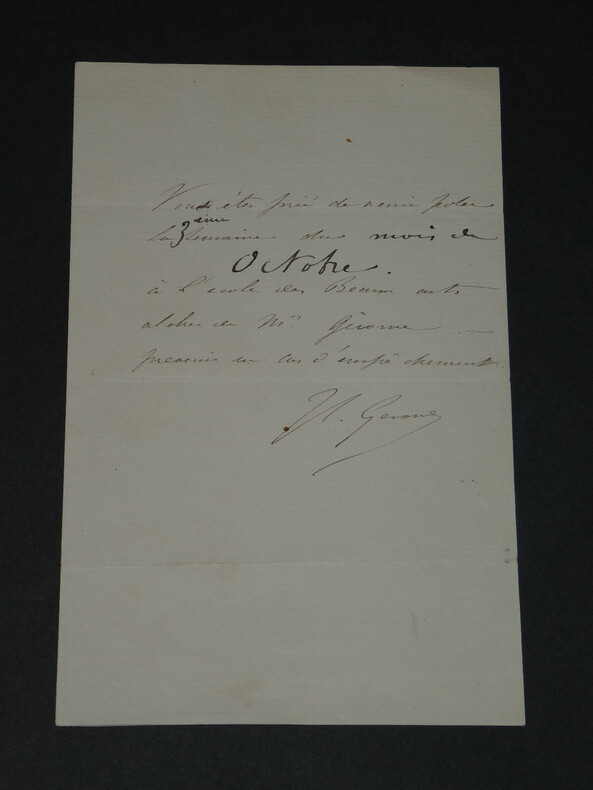 Vous êtes prié de venir poser
la 3ème semaine du mois de
Octobre.
à L'école des Beaux arts
atelier de Mr Gérome _
prévenir en cas d'empêchement
JL. Gerome